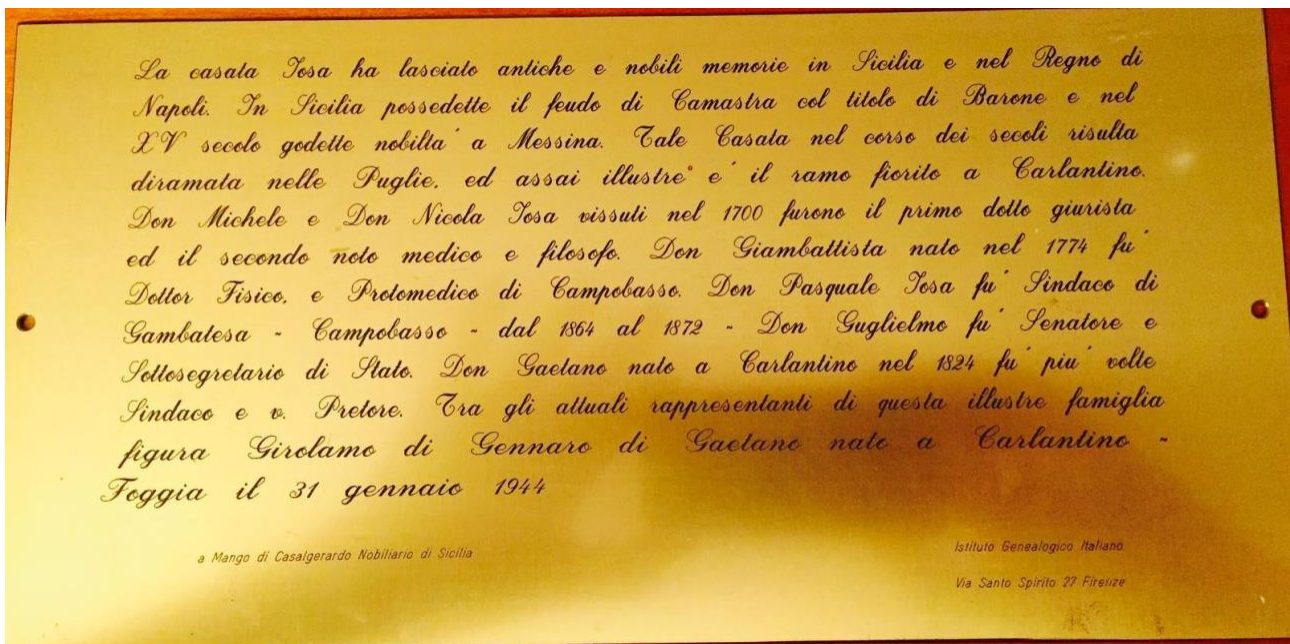 La casata Iosa ha lasciato antiche e nobili memorie in Sicilia e nel Regno di
Napoli. In Sicilia possedette il feudo di Camastra col titolo di Barone e nel
XV secolo godette nobiltà a Messina. Tale Casata nel corso dei secoli risulta
diramata nelle Puglie, ed assai illustre e' il ramo fiorito a Carlantino.
Don Michele e Don Nicola Iosa vissuti nel 1700 furono il primo dotto giurista
ed il secondo noto medico e filosofo. Don Giambattista nato nel 1774 fu'
Dottor Fisico, e Protomedico di Campobasso. Don Pasquale Iosa fu' Sindaco di
Gambatesa - Campobasso - dal 1864 al 1872 - Don Guglielmo fu' Senatore e
Sottosegretario di Stato. Don Gaetano nato a Carlantino nel 1824 fu' piu' volte
Sindaco e v. Pretore. Tra gli attuali rappresentanti di questa illustre famiglia
figura Girolamo di Gennaro di Gaetano nato a Carlantino -
Foggia il 31 gennaio 1944
a Mango di Casalgerardo Nobiliario di Sicilia
Istituto Genealogico Italiano
Via Santo Spirito 27 Firenze